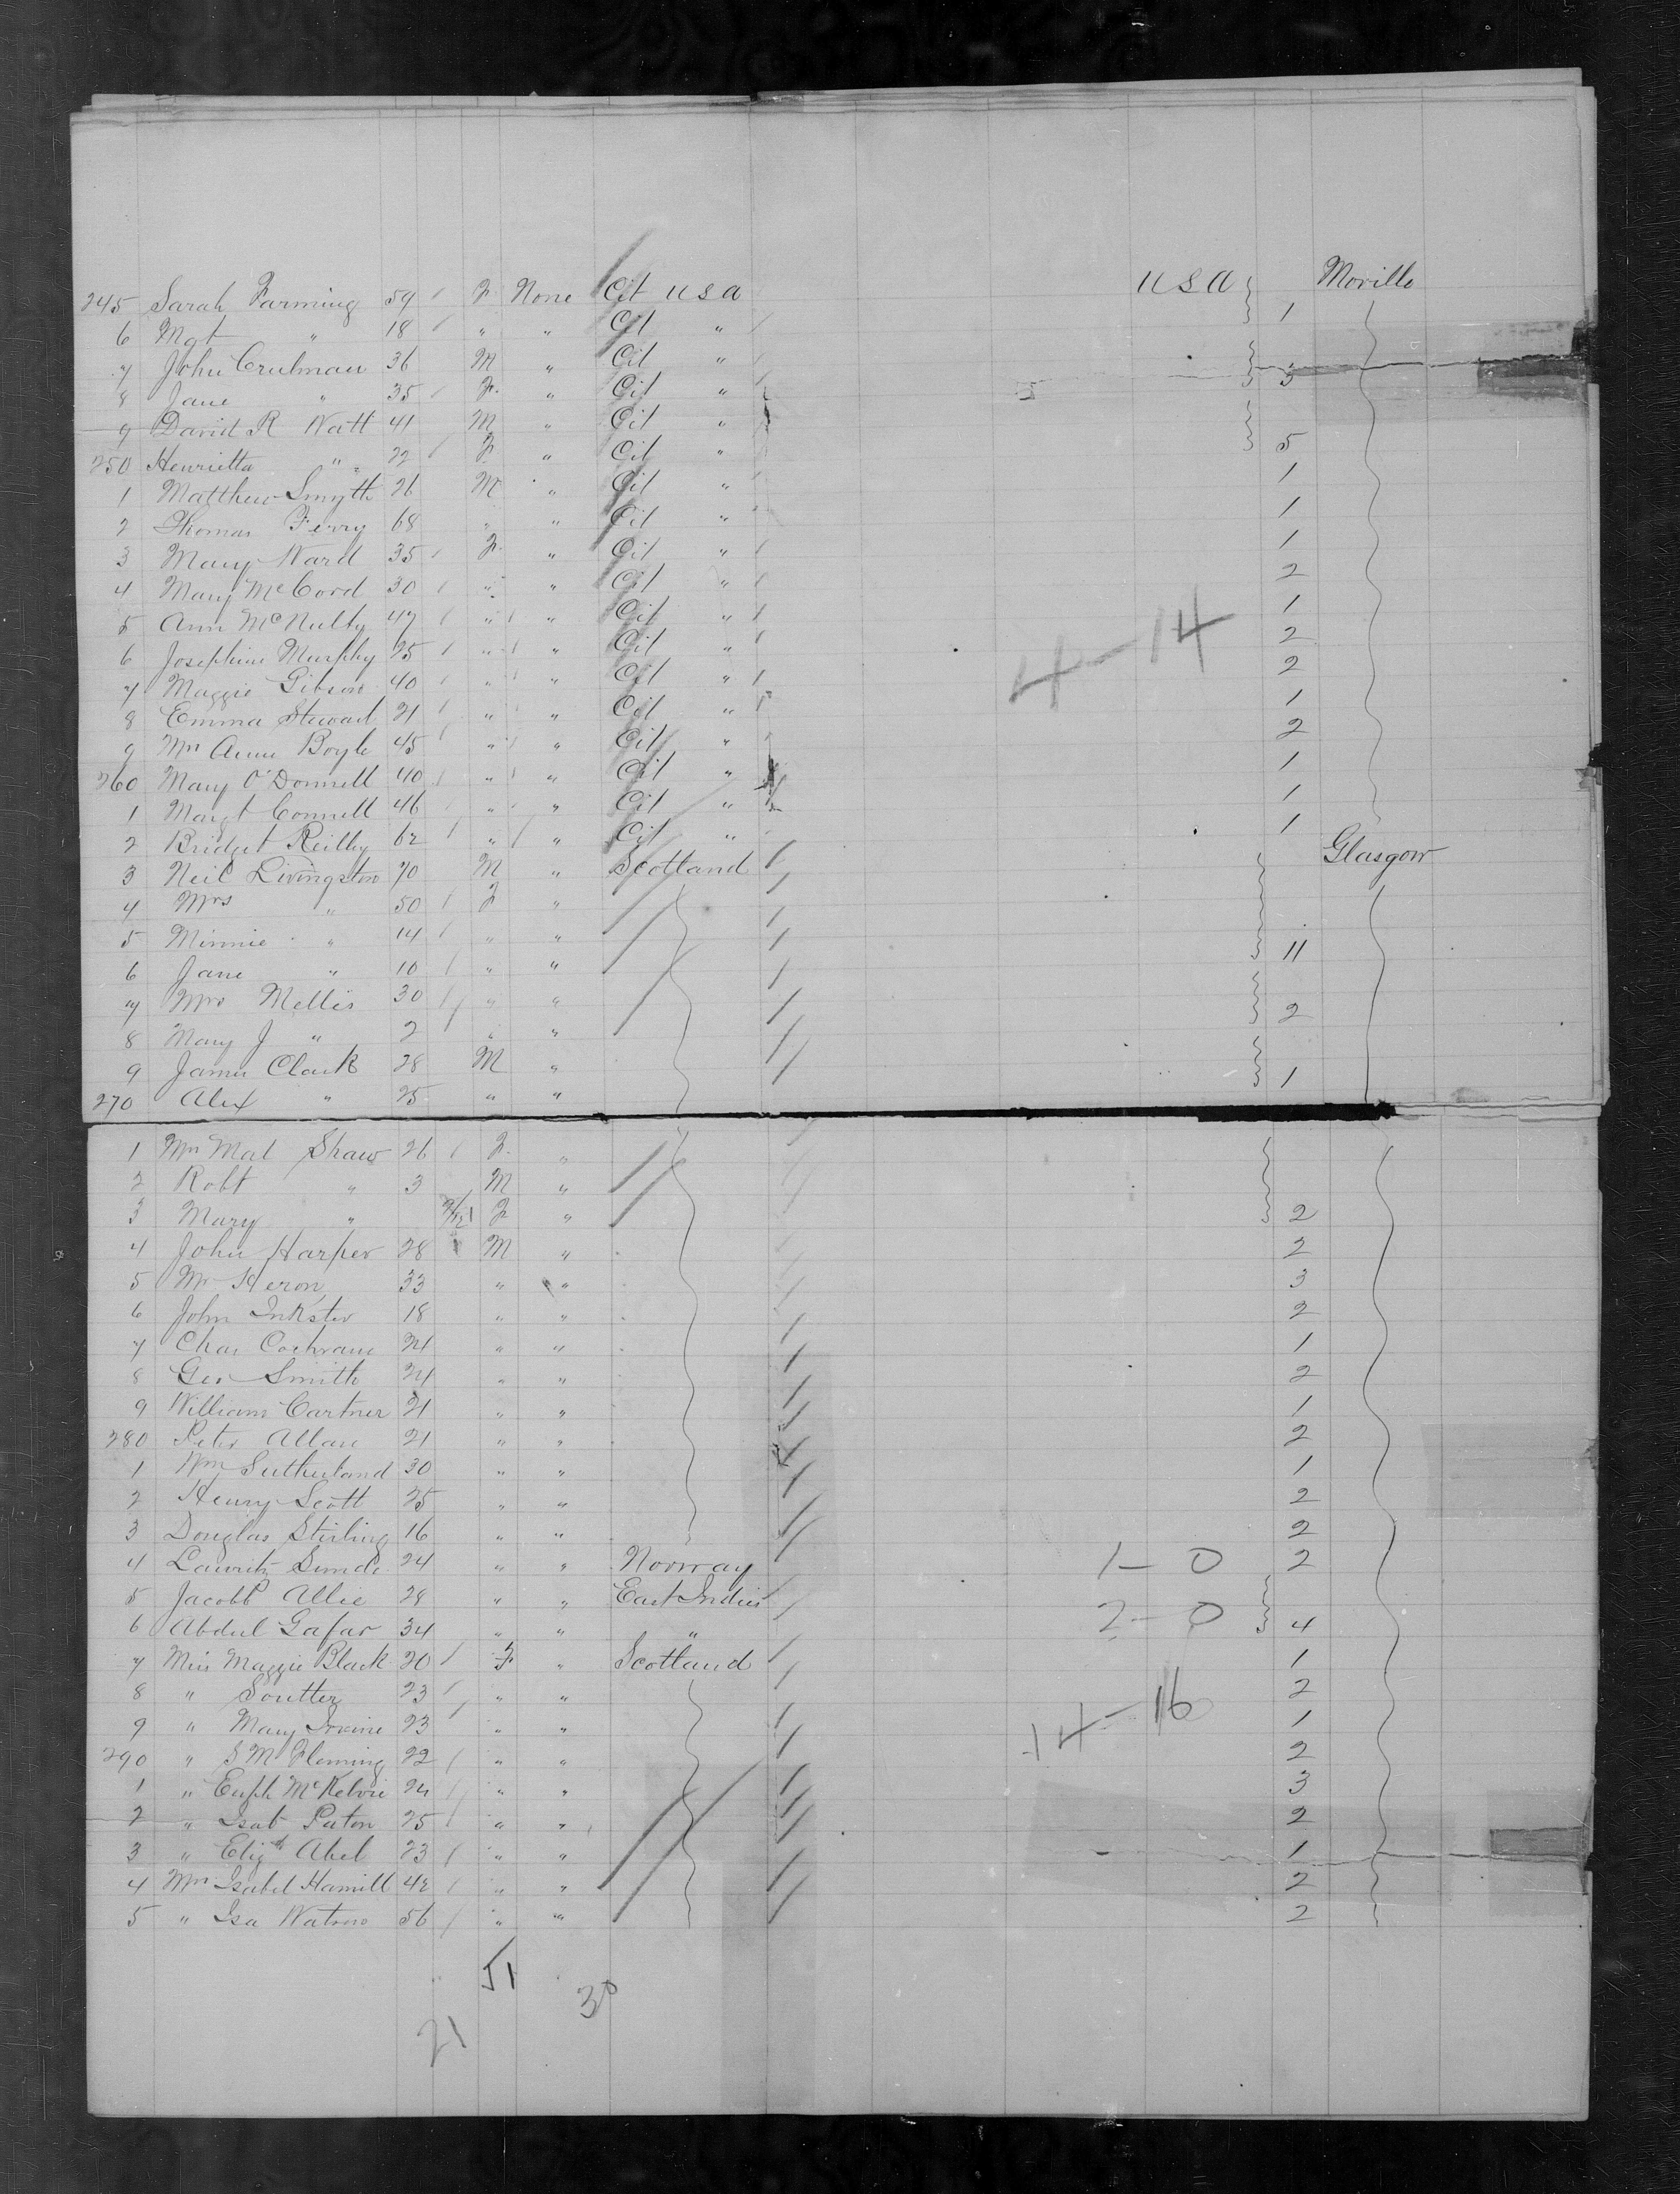 245 Sarah Farming 59 F None Cit USA USA Moville
6 Mgt " 18 " " Cit " 1
7 John Crulman 36 M " Cit "
8 Jane " 35 F " Cit " 3
9 David R Watt 41 M " Cit "
250 Henrietta " 22 F " Cit " 5
1 Matthew Smyth 26 M " Cit " 1
2 Thomas Ferry 68 " " Cit " 1
3 Mary Ward 35 F " Cit " 1
4 Mary McCord 30 " " Cit " 2
5 Ann McNulty 47 " " Cit " 1
6 Josephine Murphy 25 " " Cit " 2
7 Maggie Gibson 40 " " Cit " 2
8 Emma Steward 21 " " Cit " 1
9 Mrs Annie Boyle 45 " " Cit " 2
4-14
260 Mary O'Donnell 40 " " Cit " 1
1 Margt Connell 46 " " Cit " 1
2 Bridget Reilly 62 " " Cit " 1
3 Neil Livingston 70 M " Scotland Glasgow
4 Mrs " 50 F "
5 Minnie " 14 " "
6 Jane " 10 " " 11
7 Mrs Mellis 30 " "
8 Mary J " 2 " " 2
9 James Clark 28 M "
270 Alex " 25 " " 1
1 Mrs Mal Shaw 26 F "
2 Robt " 3 M "
3 Mary " F " 2
4 John Harper 28 M " 2
5 Mr Heron 33 " " 3
6 John Inkster 18 " " 2
7 Chas Cochrane 24 " " 1
8 Geo Smith 24 " " 2
9 William Cartner 21 " " 1
280 Peter Allan 21 " " 2
1 Wm Sutherland 30 " " 1
2 Henry Scott 25 " " 2
3 Douglas Stirling 16 " " 2
4 Lauritz Sunde 24 " " Norway 1-0 2
5 Jacobb Allie 28 " " East Indies
6 Abdul Gafar 34 " " " 2-0 4
7 Miss Maggie Black 20 F " Scotland 1
8 " Soutter 23 " " 2
9 " Mary Irvine 23 " " 14-16 1
290 " S M Fleming 22 " " 2
1 " Euph McKelvie 24 " " 3
2 " Isab Paton 25 " " 2
3 " Elizth Abel 23 " " 1
4 Mrs Isabel Hamill 42 " " 2
5 " Isa Watson 56 " " 2
51
30
21